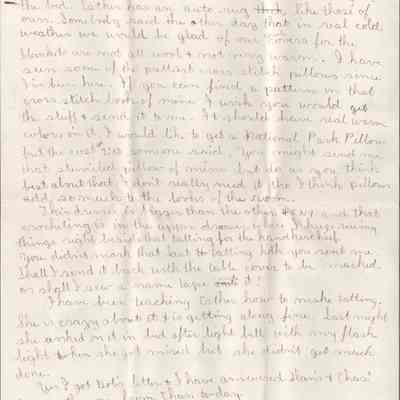 the bed. Esther has an auto rug like those of
ours. Somebody said the other day that in real cold
weather we would be glad of our covers for the
blankets are not all wool & not very warm. I have
seen some of the prettiest cross stitch pillows since
I've been here. If you can find a pattern in that
cross stitch book of mine I wish you would get
the stuff & send it to me. It should have real warm
colors in it. I would like to get a National Park Pillow
but they cost someone said. You might send me
that stenciled pillow of mine but do as you think
best about that. I don't really need it tho I think pillows
add so much to the looks of the room.
This dresser is bigger than the other and that
crocheting is in the upper drawer where I keep sewing
things right beside that tatting for the handkerchief.
You didn't mark that last tatting hdk you sent me.
Shall I send it back with the table cover to be marked
or shall I sew a name tape onto it?
I have been teaching Esther how to make tatting.
She is crazy about it & is getting along fine. Last night
she worked on it in bed after light bell with my flash
light when she got mixed but she didn't get much
done.
Yes I got Bob's letter & I have answered &
from today.